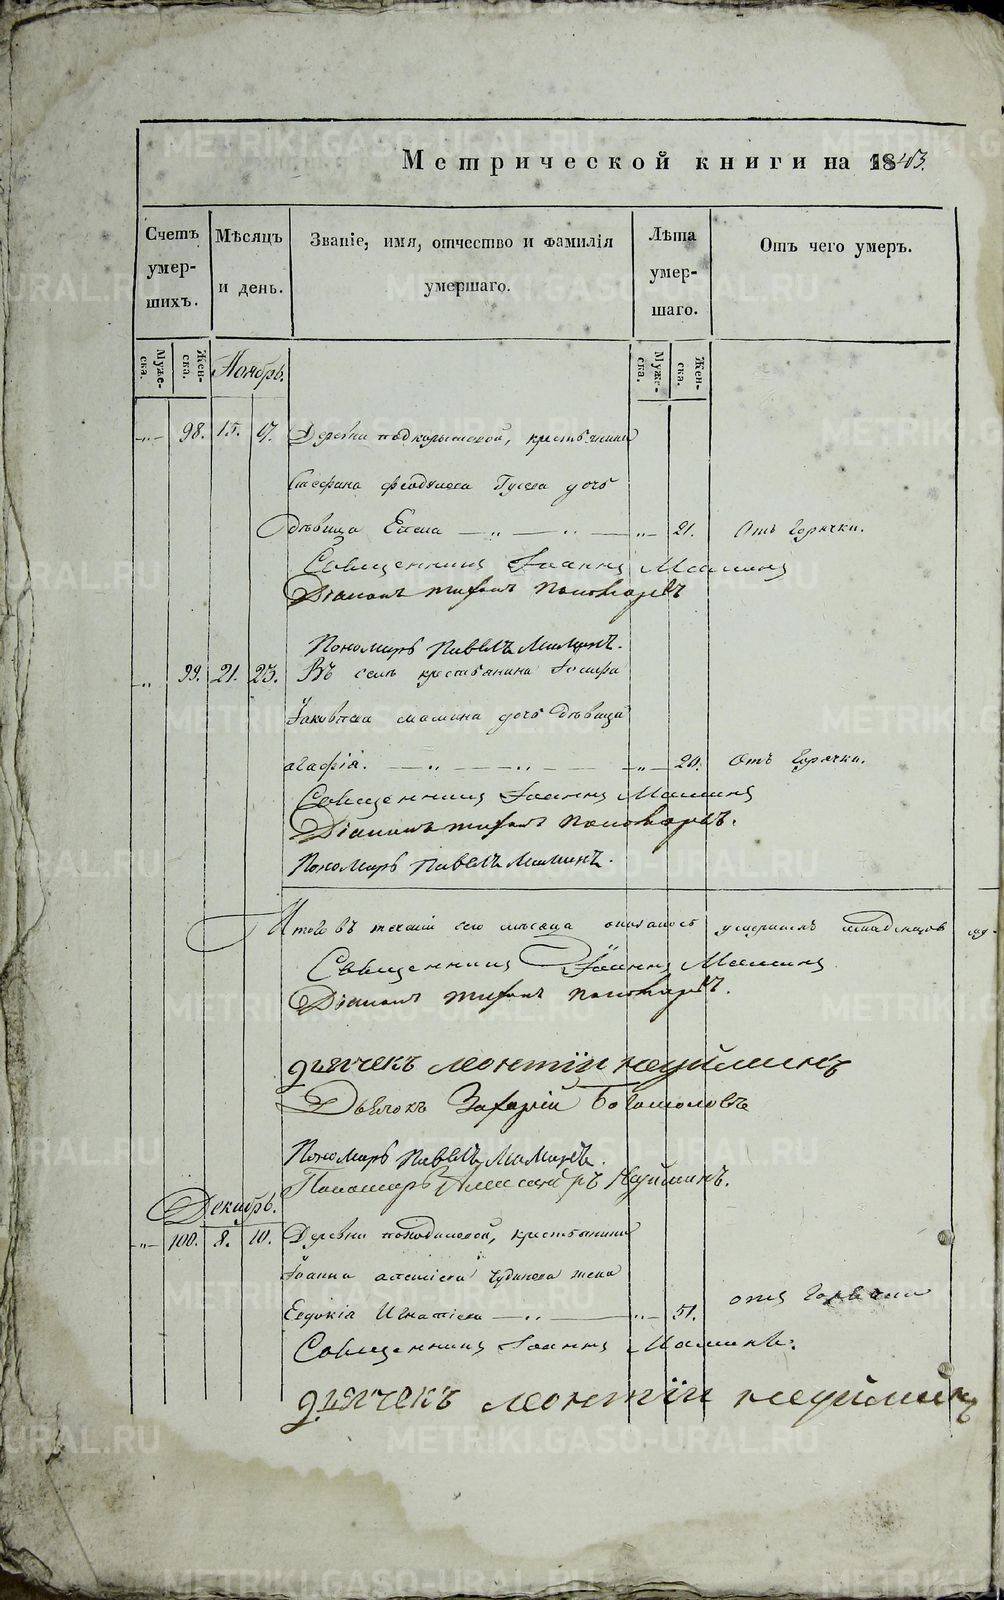 Метрической книги на 1843.
Счетъ умершихъ.
Мѣсяцъ и день.
Званіе, имя, отчество и фамилія умершаго.
Лѣта умершаго.
Отъ чего умеръ.
Мужеска.
Женска.
Ноябрь.
Мужеска.
Женска.
98. 15. 17. Деревни крестьянина
Стефана Гусева дочь
дѣвица 21. Отъ горячки.
Священникъ Іоаннъ Маминъ
Діаконъ Тихонъ Пономаревъ
Пономарь Павелъ Маминъ.
99. 21. 23. Въ селѣ крестьянина Іосифа
Іаковлева Мамина дочь дѣвица
Агафія. 20. Отъ горячки.
Священникъ Іоаннъ Маминъ
Діаконъ Тихонъ Пономаревъ.
Пономарь Павелъ Маминъ.
Итого въ теченіи сего мѣсяца умершихъ младенцовъ
Священникъ Іоаннъ Маминъ
Діаконъ Тихонъ Пономаревъ.
дьячекъ Леонтiи неуйминъ
Дьячокъ Захарій Богомоловъ
Пономарь Павелъ Маминъ.
Пономарь Неуйминъ.
Декабрь.
100. 8. 10. Деревни крестьянина
Іоанна Чудинова жена
Евдокія Игнатіева 51. отъ горячки
Священникъ Іоаннъ Маминъ.
дьячекъ леонтiи неуйминъ